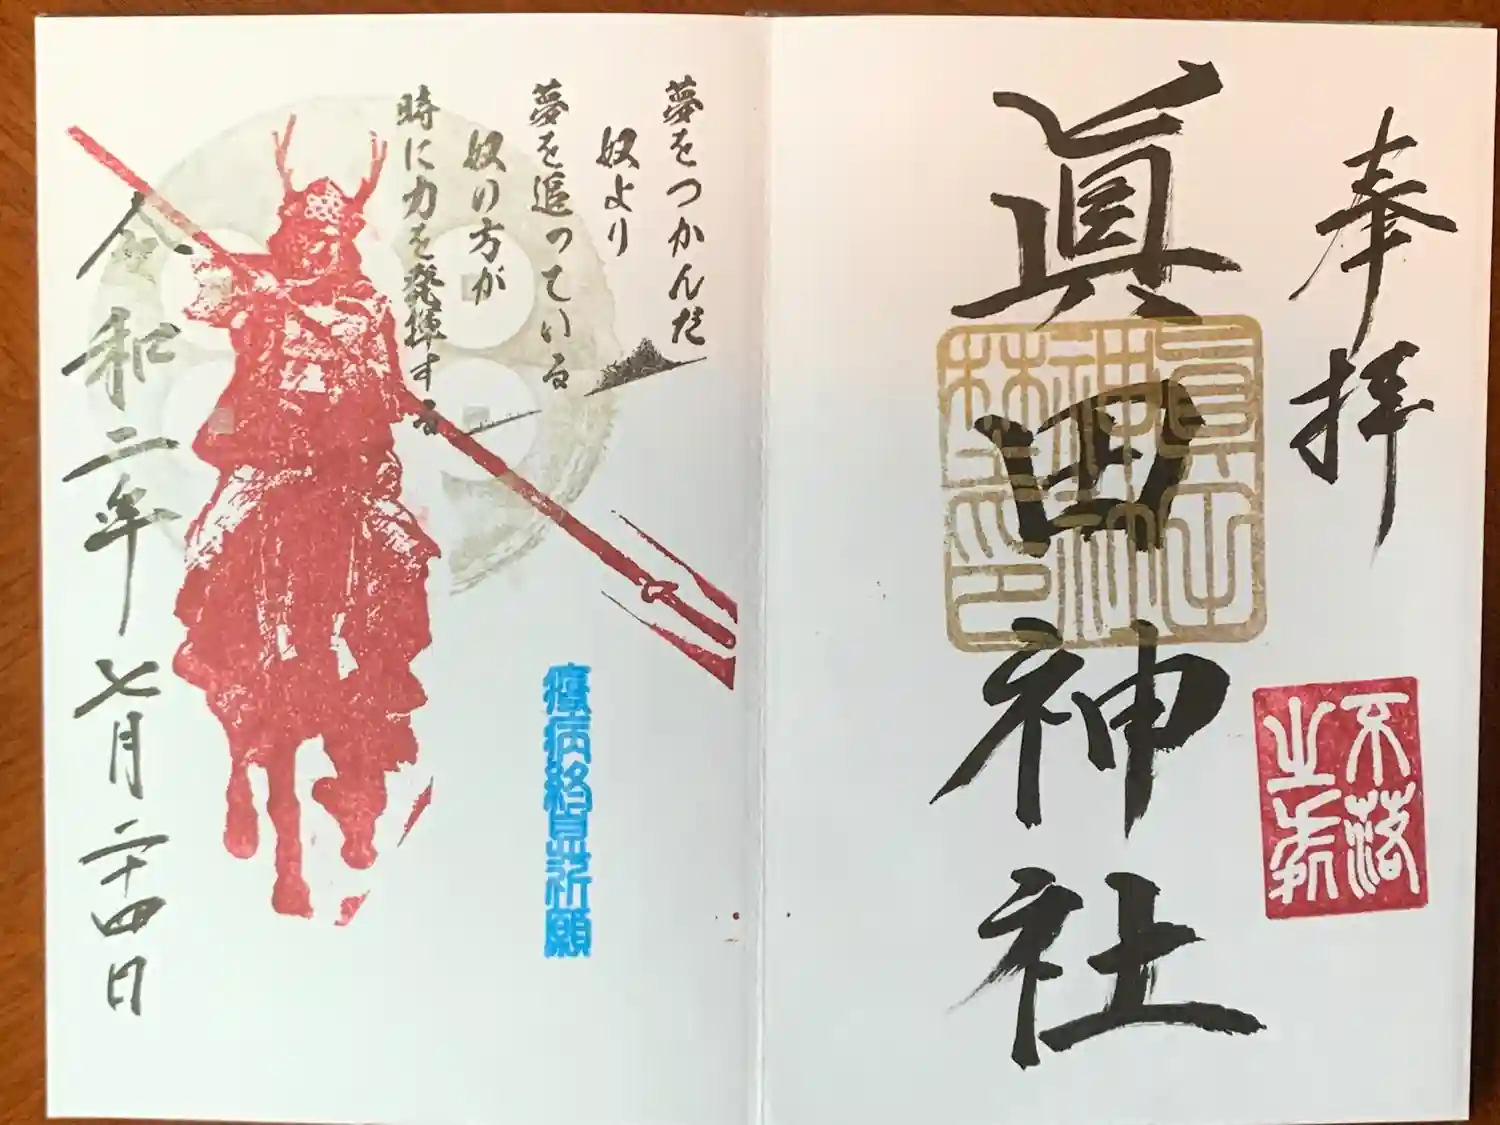 奉拝
眞田神社
眞田
神社
不落
之
夢をつかんだ
奴より
夢を追っている
奴の方が
時に力を発揮する
祈願
令和二年七月二十四日